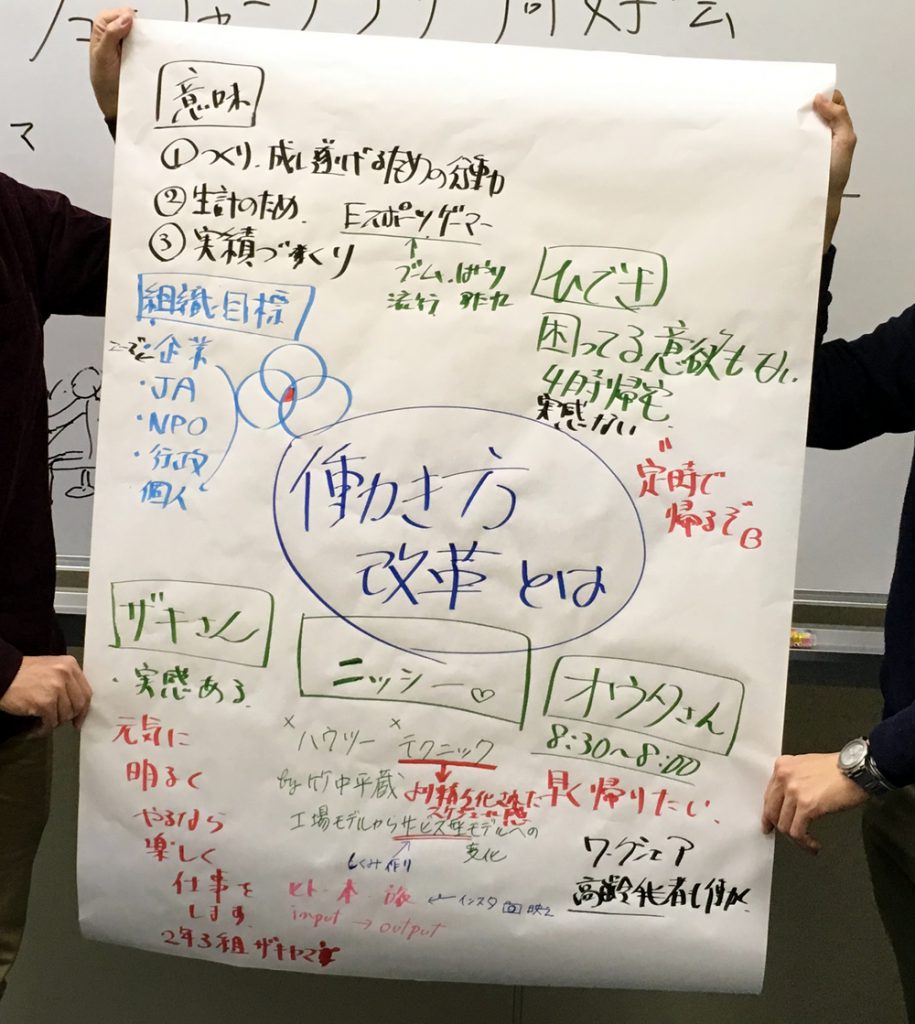 同好会
マ
意味
①つくり、成し遂げるための行動
②生計のため
③実績づくり
Eスポーツ、ゲーマー
ブーム、はやり
流行
組織目標
・企業
・JA
・NPO
・行政
個人
ひでき
困ってる意欲もない
4時帰宅
実感ない
定時で
帰るぞB
働き方
改革とは
ザキさん
・実感ある
元気に
明るく
やるなら
楽しく
仕事を
します
2年3組ザキヤマ
ニッシー♡
×ハウツー ×テクニック
by竹中平蔵
より
工場モデルからサービス型モデルへの
変化
しくみ作り
ヒト・本・旅 ← インスタ映え
input → output
オウタさん
8:30〜8:00
早く帰りたい
ワークシェア
高齢者も働く